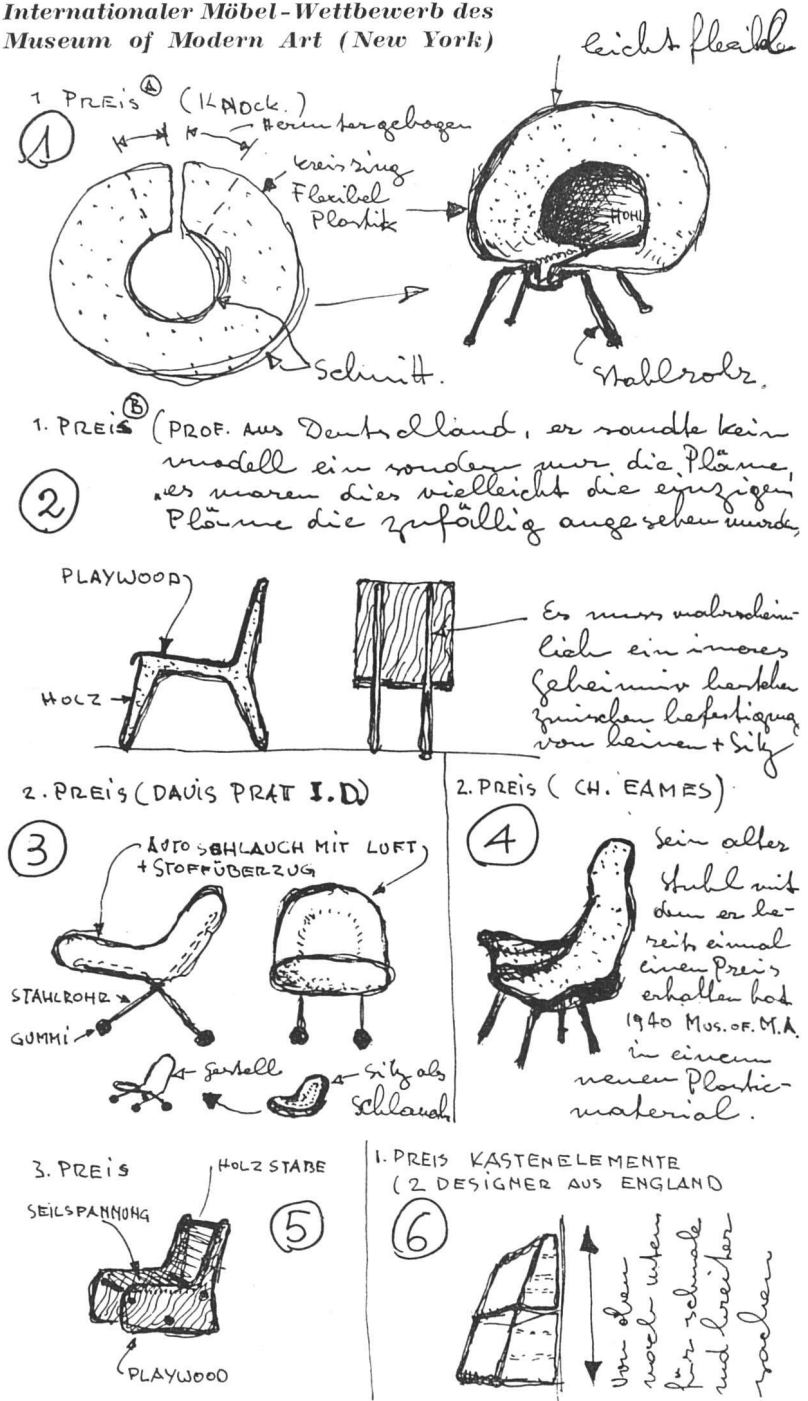 Internationaler Möbel-Wettbewerb des
Museum of Modern Art (New York)
leicht flexibel
1 PREIS A (KNOCK.)
1
Heruntergebogen
Kreisring
Flexibel
Plastik
HOHL
Schnitt.
Stahlrohr.
1. PREIS B (PROF. AUS Deutschland, er sandte kein
modell ein sondern nur die Pläne,
es waren dies vielleicht die einzigen
Pläne die zufällig angesehen wurden,
2
PLAYWOOD
HOLZ
Es muss wahrschein-
lich ein inneres
Geheimnis bestehen
zwischen befestigung
von beinen + Sitz
2. PREIS (DAVIS PRAT I.D.)
3
AUTOSCHLAUCH MIT LUFT
+ STOFFÜBERZUG
STAHLROHR
GUMMI
Gestell
Sitz als
Schlauch
2. PREIS (CH. EAMES)
4
Sein alter
Stuhl mit
dem er be-
reits einmal
einen Preis
erhalten hat
1940 MUS. OF. M.A.
in einem
neuen Plastic-
material.
3. PREIS
HOLZSTABE
SEILSPANNUNG
5
PLAYWOOD
1. PREIS KASTENELEMENTE
(2 DESIGNER AUS ENGLAND
6
Von oben
nach unten
für schmale
und breiter
sachen